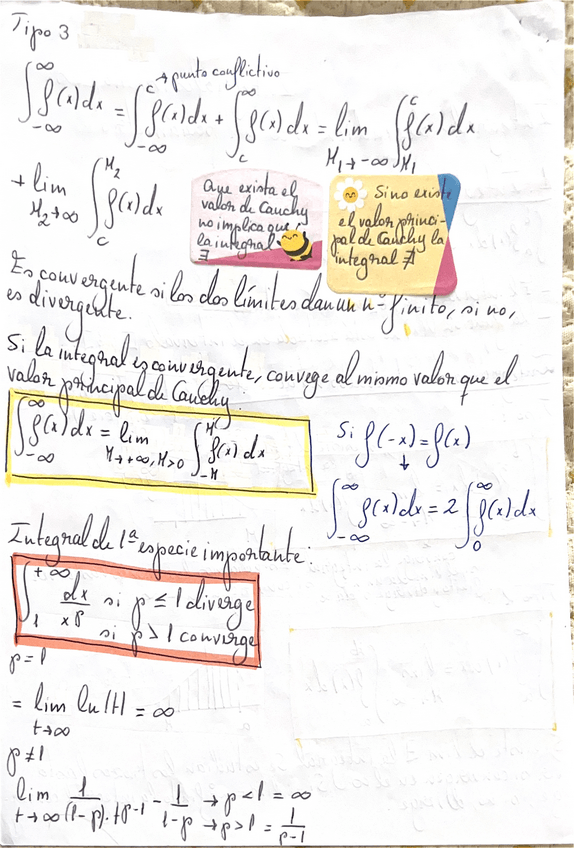 Tipo 3
∫_{-∞}^{∞} f(x)dx = ∫_{-∞}^{c} f(x)dx + ∫_{c}^{∞} f(x)dx = lim_{M₁→-∞} ∫_{M₁}^{c} f(x)dx
→ punto conflictivo
+ lim_{M₂→∞} ∫_{c}^{M₂} f(x)dx
Que exista el
valor de Cauchy
no implica que
la integral
∃
Si no existe
el valor princi-
pal de Cauchy la
integral ∄
Es convergente si los dos límites dan un nº finito, si no,
es divergente.
Si la integral es convergente, convege al mismo valor que el
valor principal de Cauchy.
∫_{-∞}^{∞} f(x)dx = lim_{M→+∞, M>0} ∫_{-M}^{M} f(x)dx
Si f(-x) = f(x)
↓
∫_{-∞}^{∞} f(x)dx = 2 ∫_{0}^{∞} f(x)dx
Integral de 1ª especie importante:
∫_{1}^{+∞} dx/x^p si p ≤ 1 diverge
si p > 1 converge
p = 1
= lim_{t→∞} ln|t| = ∞
p ≠ 1
lim_{t→∞} 1/((1-p)·t^{p-1}) - 1/(1-p) → p < 1 = ∞
→ p > 1 = 1/(p-1)